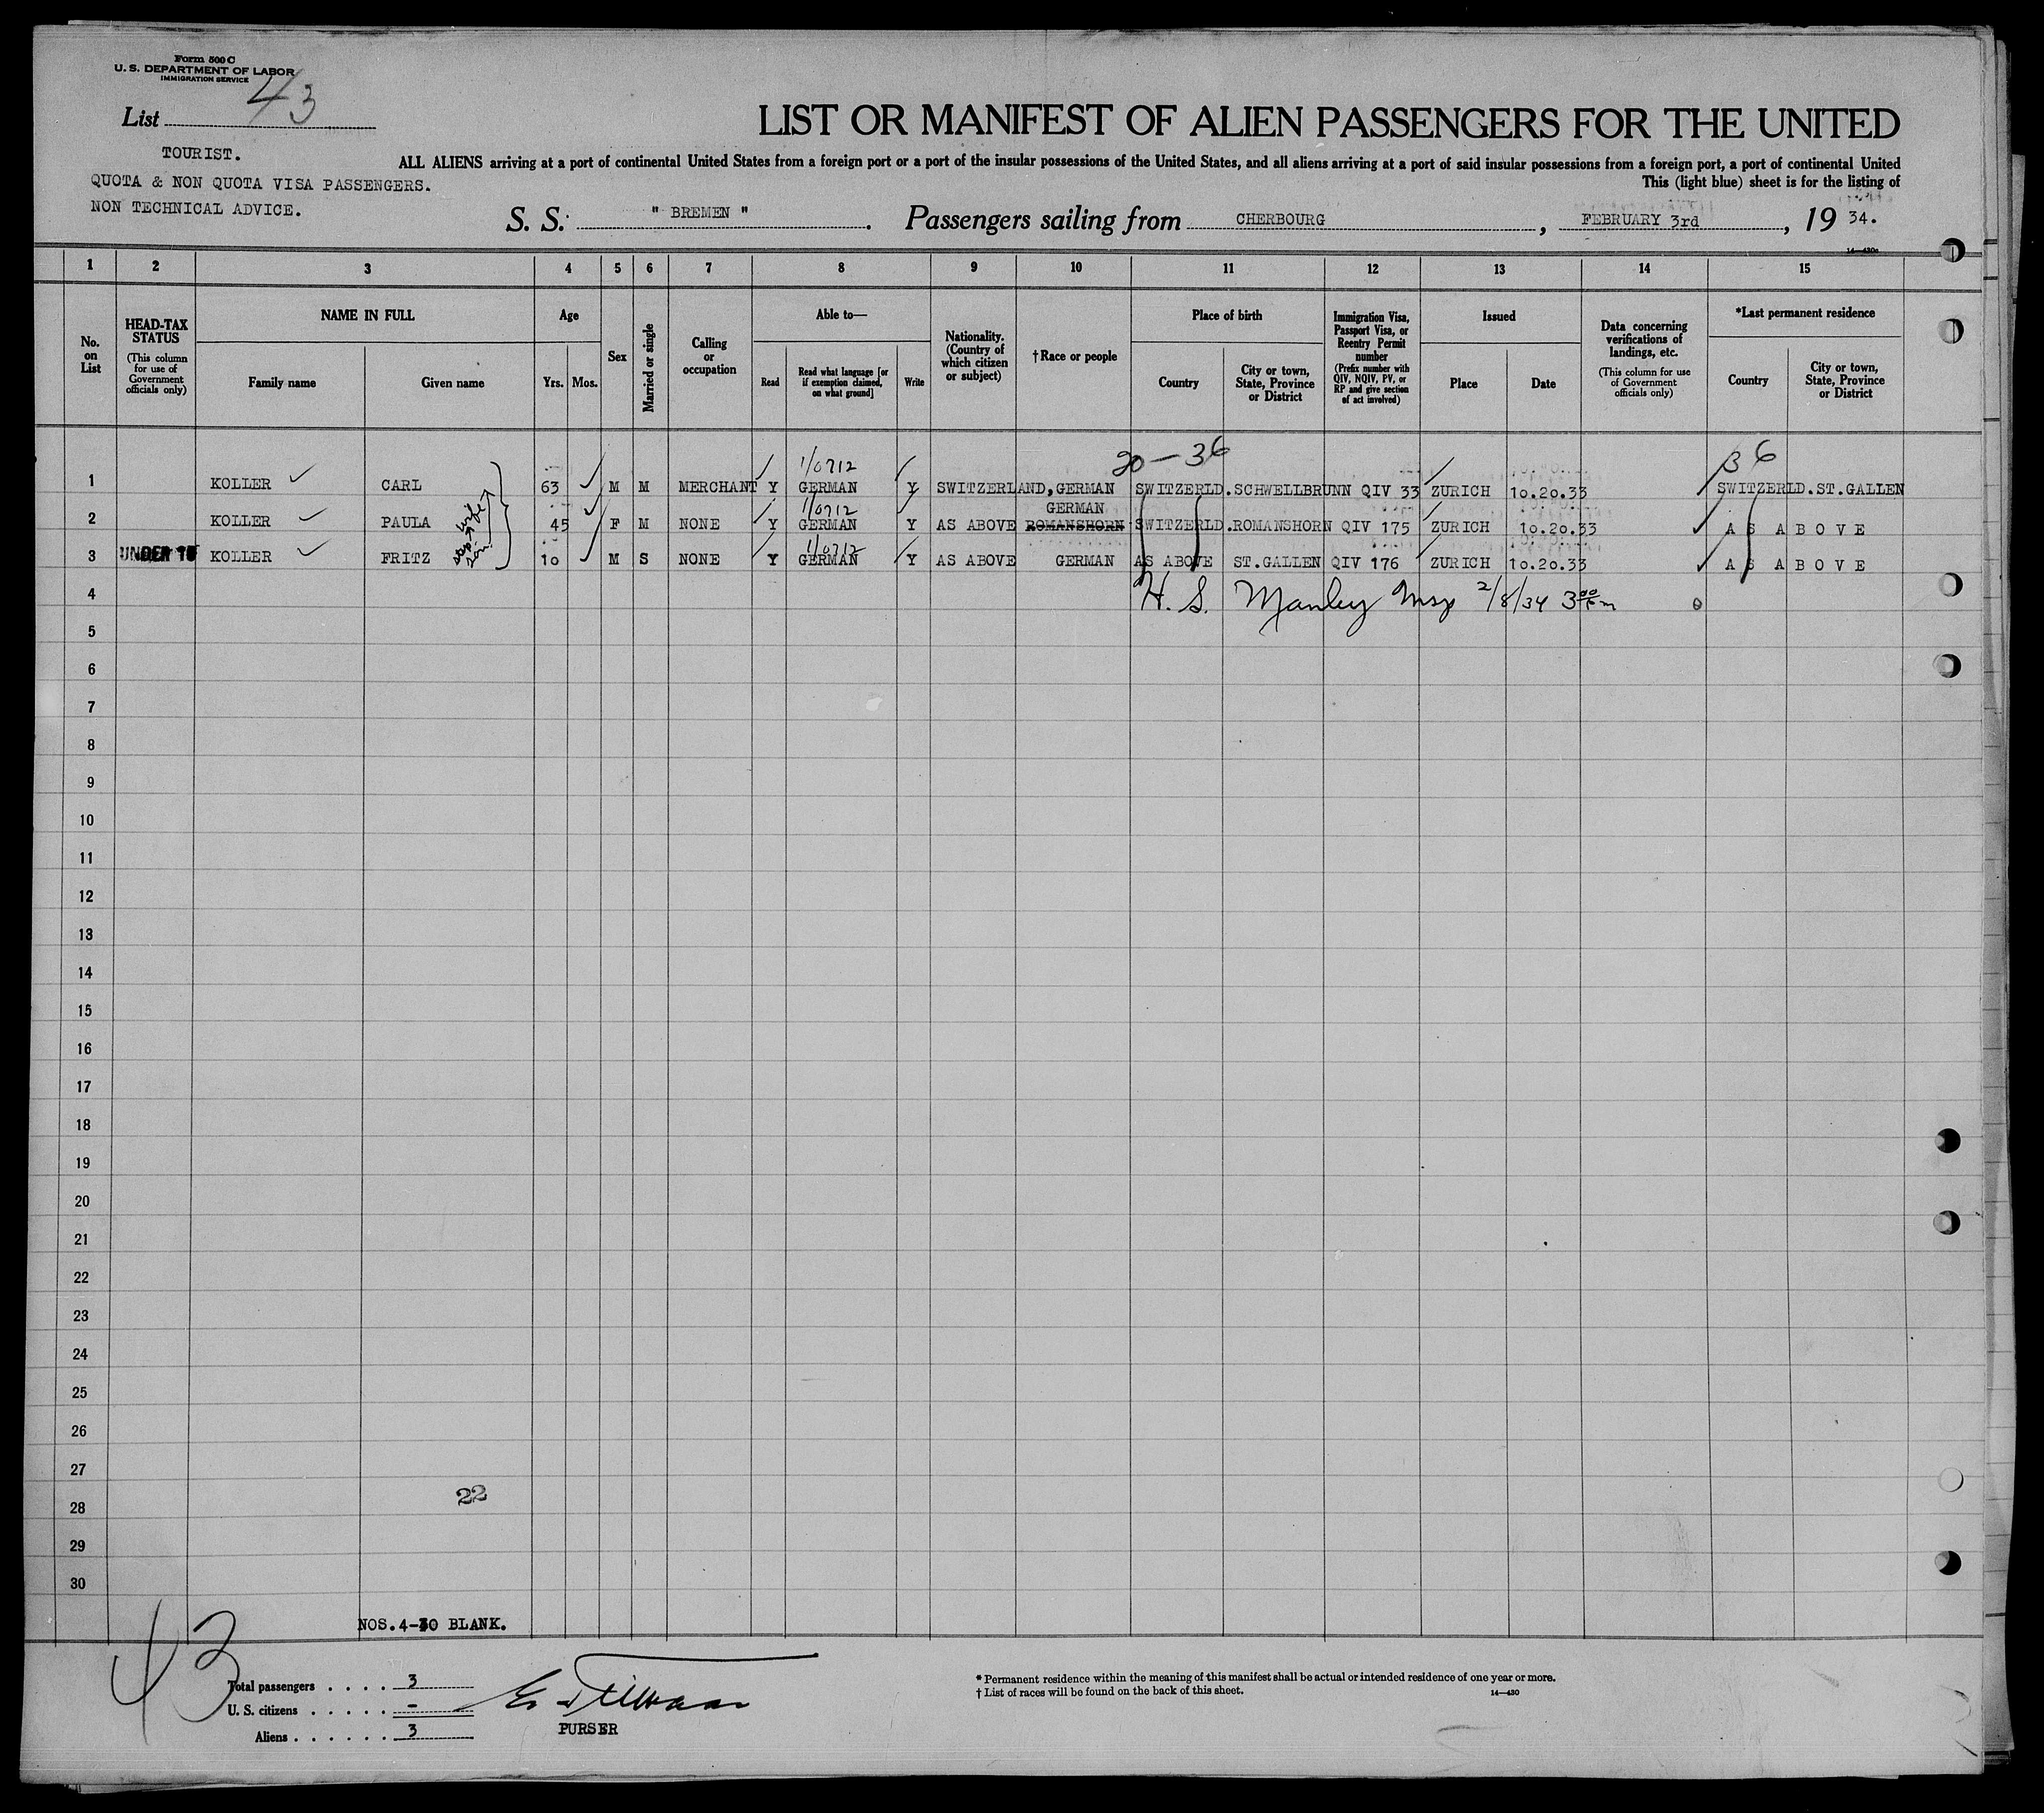 Form 500 C
U. S. DEPARTMENT OF LABOR
IMMIGRATION SERVICE
List 43
LIST OR MANIFEST OF ALIEN PASSENGERS FOR THE UNITED
TOURIST.
QUOTA & NON QUOTA VISA PASSENGERS.
NON TECHNICAL ADVICE.
ALL ALIENS arriving at a port of continental United States from a foreign port or a port of the insular possessions of the United States, and all aliens arriving at a port of said insular possessions from a foreign port, a port of continental United
This (light blue) sheet is for the listing of
S. S. " BREMEN ". Passengers sailing from CHERBOURG, FEBRUARY 3rd, 19 34.
14—430a
1 2 3 4 5 6 7 8 9 10 11 12 13 14 15
No. on List
HEAD-TAX STATUS (This column for use of Government officials only)
NAME IN FULL Family name Given name
Age Yrs. Mos.
Sex
Married or single
Calling or occupation
Able to— Read Read what language [or if exemption claimed, on what ground] Write
Nationality. (Country of which citizen or subject)
†Race or people
Place of birth Country City or town, State, Province or District
Immigration Visa, Passport Visa, or Reentry Permit number (Prefix number with QIV, NQIV, PV, or RP and give section of act involved)
Issued Place Date
Data concerning verifications of landings, etc. (This column for use of Government officials only)
*Last permanent residence Country City or town, State, Province or District
20-36 36
1/0712
1 KOLLER CARL 63 M M MERCHANT Y GERMAN Y SWITZERLAND, GERMAN SWITZERLD. SCHWELLBRUNN QIV 33 ZURICH 10.20.33 SWITZERLD. ST.GALLEN
1/0712 GERMAN
2 KOLLER PAULA wife 45 F M NONE Y GERMAN Y AS ABOVE ROMANSHORN SWITZERLD. ROMANSHORN QIV 175 ZURICH 10.20.33 AS ABOVE
1/0712
3 UNDER 16 KOLLER FRITZ son 10 M S NONE Y GERMAN Y AS ABOVE GERMAN AS ABOVE ST.GALLEN QIV 176 ZURICH 10.20.33 AS ABOVE
4 H. S. Manley 2/8/34 3 00 pm
5
6
7
8
9
10
11
12
13
14
15
16
17
18
19
20
21
22
23
24
25
26
27
22
28
29
30
NOS.4-30 BLANK.
43
Total passengers . . . . 3
U. S. citizens . . . . . -
Aliens . . . . . . 3
PURSER
* Permanent residence within the meaning of this manifest shall be actual or intended residence of one year or more.
† List of races will be found on the back of this sheet.
14—430